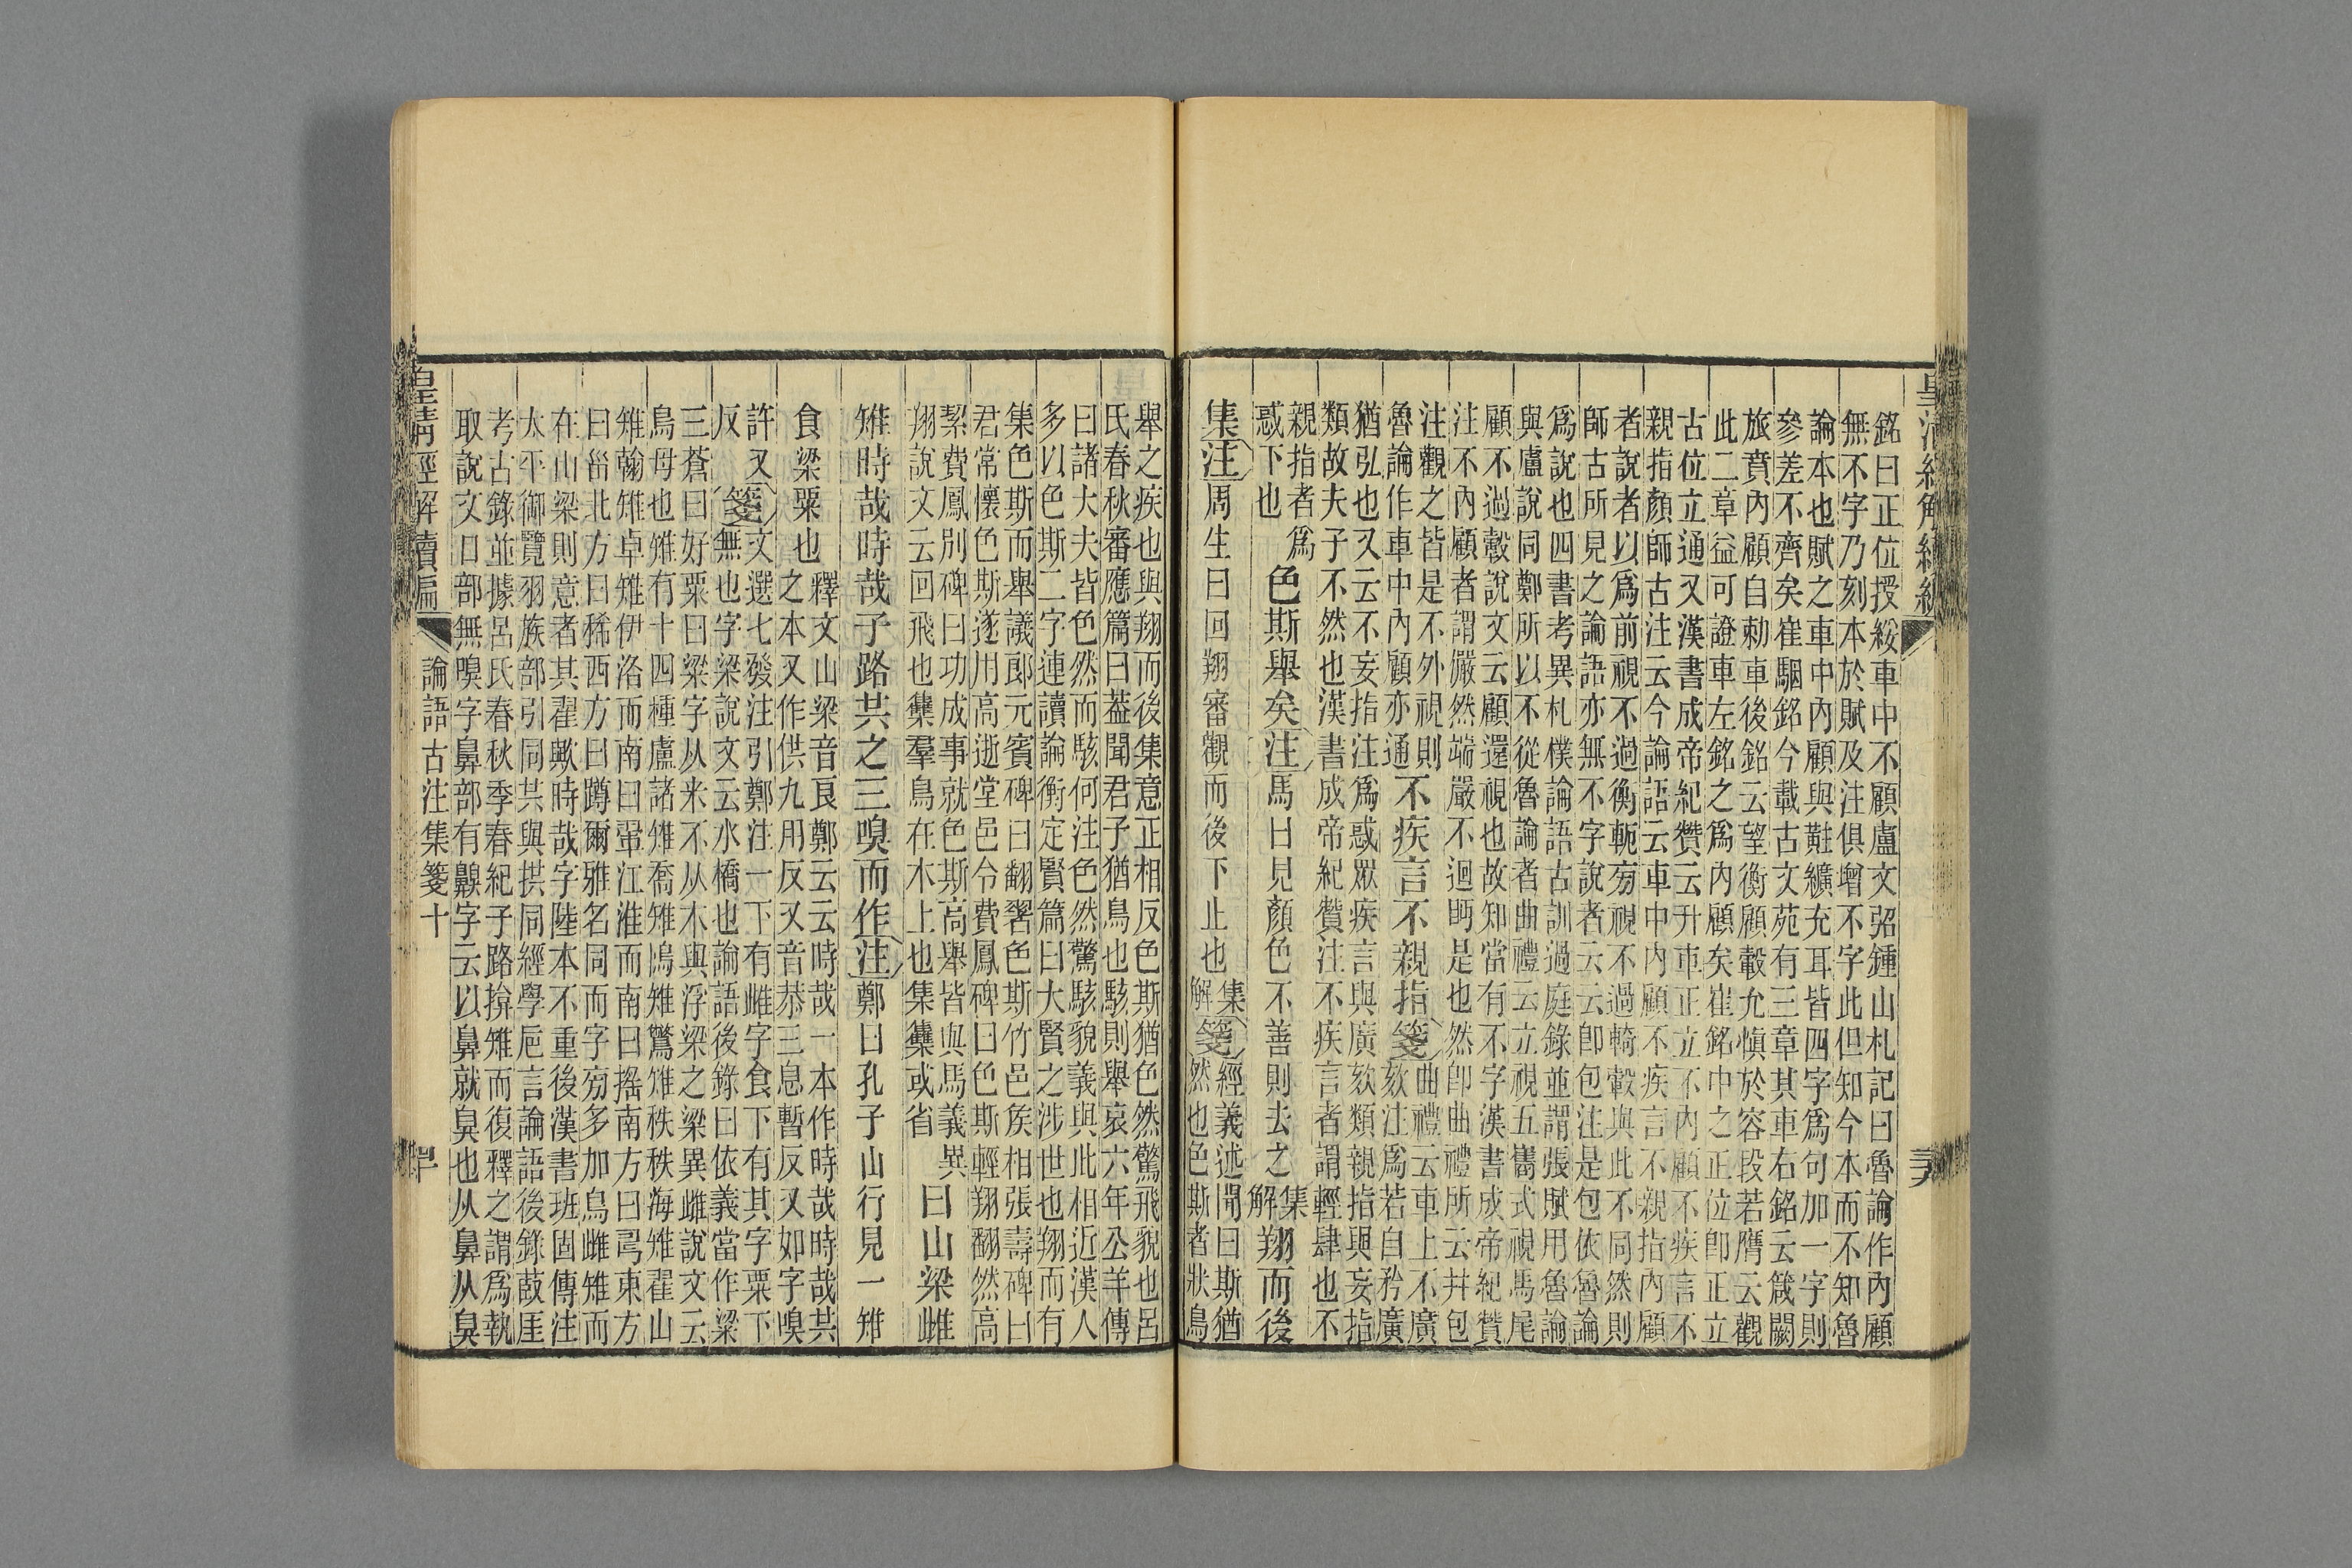 皇清經解續編
銘曰正位授綏車中不顧盧文弨鍾山札記曰魯論作內顧
無不字乃刻本於賦及注俱增不字此但知今本而不知魯
論本也賦之車中內顧與黈纊充耳皆四字爲句加一字則
參差不齊矣崔駰銘今載古文苑有三章其車右銘云箴闕
旅賁內顧自勑車後銘云望衡顧轂允愼於容段若膺云觀
此二章益可證車左銘之爲內顧矣崔銘中之正位卽正立
古位立通又漢書成帝紀贊云升車正立不內顧不疾言不
親指顏師古注云今論語云車中內顧不疾言不親指內顧
者說者以爲前視不過衡軛旁視不過輢轂與此不同然則
師古所見之論語亦無不字說者云云卽包注是包依魯論
爲說也四書考異札樸論語古訓過庭錄並謂張賦用魯論
與盧說同鄭所以不從魯論者曲禮云立視五巂式視馬尾
顧不過轂說文云顧還視也故知當有不字漢書成帝紀贊
注不內顧者謂儼然端嚴不迴眄是也然卽曲禮所云幷包
注觀之皆是不外視則
魯論作車中內顧亦通
不疾言不親指
箋
曲禮云車上不廣
欬注爲若自矜廣
猶弘也又云不妄指注爲惑眾疾言與廣欬類親指與妄指
類故夫子不然也漢書成帝紀贊注不疾言者謂輕肆也不
親指者爲
惑下也
色斯舉矣
注
馬曰見顏色不善則去之
集
解
翔而後
集
注
周生曰回翔審觀而後下止也
集
解
箋
經義述聞曰斯猶
然也色斯者狀鳥
舉之疾也與翔而後集意正相反色斯猶色然驚飛貌也呂
氏春秋審應篇曰蓋聞君子猶鳥也駭則舉哀六年公羊傳
曰諸大夫皆色然而駭何注色然驚駭貌義與此相近漢人
多以色斯二字連讀論衡定賢篇曰大賢之涉世也翔而有
集色斯而舉議郎元賓碑曰翻翥色斯竹邑矦相張壽碑曰
君常懷色斯遂用高逝堂邑令費鳳碑曰色斯輕翔翻然高
絜費鳳別碑曰功成事就色斯高舉皆與馬義異
翔說文云回飛也雧羣鳥在木上也集雧或省
曰山梁雌
雉時哉時哉子路共之三嗅而作
注
鄭曰孔子山行見一雉
食梁粟也
釋文山梁音良鄭云云時哉一本作時哉時哉共
之本又作供九用反又音恭三息暫反又如字嗅
許又
反
箋
文選七發注引鄭注一下有雌字食下有其字粟下
無也字梁說文云水橋也論語後錄曰依義當作梁
三蒼曰好粟曰梁字从来不从木與浮梁之梁異雌說文云
鳥母也雉有十四種盧諸雉喬雉鳪雉鷩雉秩秩海雉翟山
雉翰雉卓雉伊洛而南曰翬江淮而南曰搖南方曰𠷎東方
曰甾北方曰稀西方曰蹲爾雅名同而字旁多加鳥雌雉而
在山梁則意者其翟歟時哉字陸本不重後漢書班固傳注
太平御覽羽族部引同共與拱同經學卮言論語後錄菣厓
考古錄並據呂氏春秋季春紀子路揜雉而復釋之謂爲執
取說文口部無嗅字鼻部有齅字云以鼻就臭也从鼻从臭
皇清經解續編
論語古注集箋十